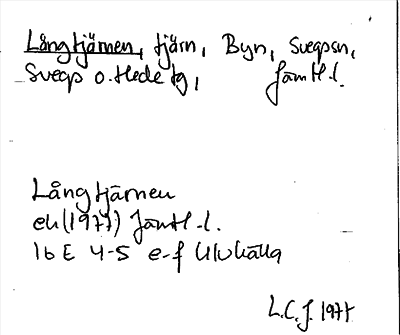 Långtjärnen, tjärn, Byn, Svegssn,
Svegs o. Hede tg, Jämtl. l.
Långtjärnen
ek (1977) Jämtl. l.
16 E 4-5 e-f Ulvkälla
L.C.J. 1977